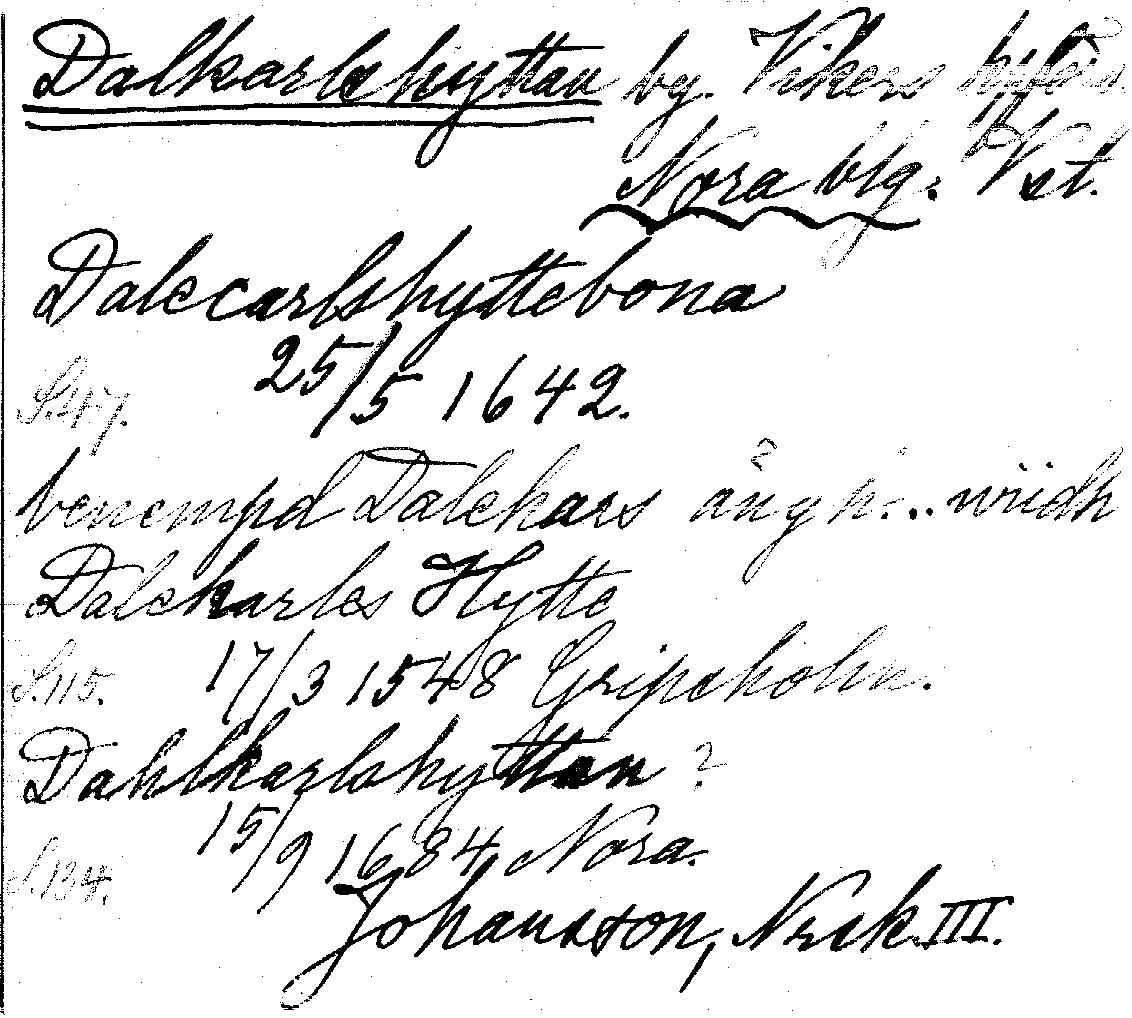 Dalkarlshyttan by. Vikers
Nora blg. Vst.
Dalecarlshyttebona
25/5 1642.
S. 47.
benempd Dalekars ängh... wiidh
Dalekarles Hytte
S. 115. 17/3 1548 Gripsholm.
Dahlkarlshyttan ?
15/9 1684, Nora.
S. 134.
Johansson, Norsk. III.